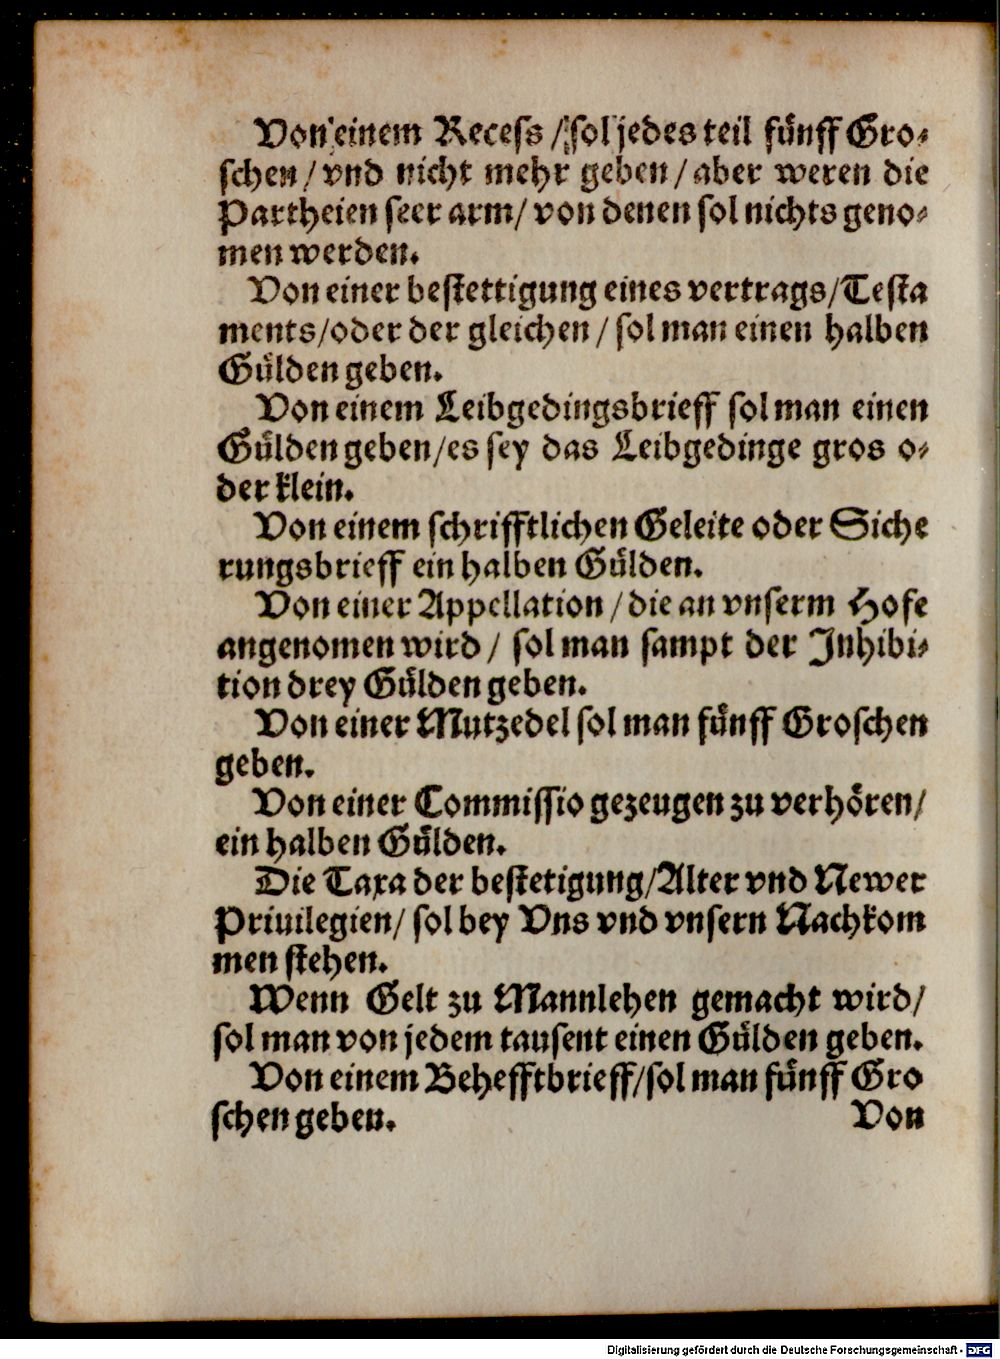 Von einem Recess / sol jedes teil fünff Gro⸗
schen / vnd nicht mehr geben / aber weren die
Partheien seer arm / von denen sol nichts geno⸗
men werden.
Von einer bestettigung eines vertrags / Testa
ments / oder der gleichen / sol man einen halben
Gülden geben.
Von einem Leibgedingsbrieff sol man einen
Gülden geben / es sey das Leibgedinge gros o⸗
der klein.
Von einem schrifftlichen Geleite oder Siche
rungsbrieff ein halben Gülden.
Von einer Appellation / die an vnserm Hofe
angenomen wird / sol man sampt der Inhibi⸗
tion drey Gülden geben.
Von einer Mutzedel sol man fünff Groschen
geben.
Von einer Commissio gezeugen zu verhören /
ein halben Gülden.
Die Taxa der bestetigung / Alter vnd Newer
Priuilegien / sol bey Vns vnd vnsern Nachkom
men stehen.
Wenn Gelt zu Mannlehen gemacht wird /
sol man von jedem tausent einen Gülden geben.
Von einem Behefftbrieff / sol man fünff Gro
schen geben. Von
Digitalisierung gefördert durch die Deutsche Forschungsgemeinschaft - DFG